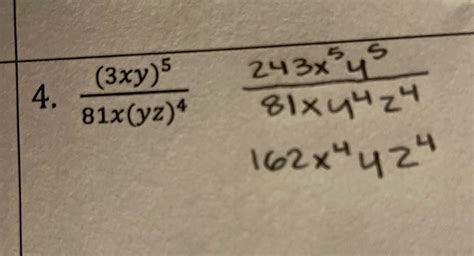 4. (3xy)⁵ / 81x(yz)⁴
243x⁵y⁵ / 81xy⁴z⁴
162x⁴yz⁴